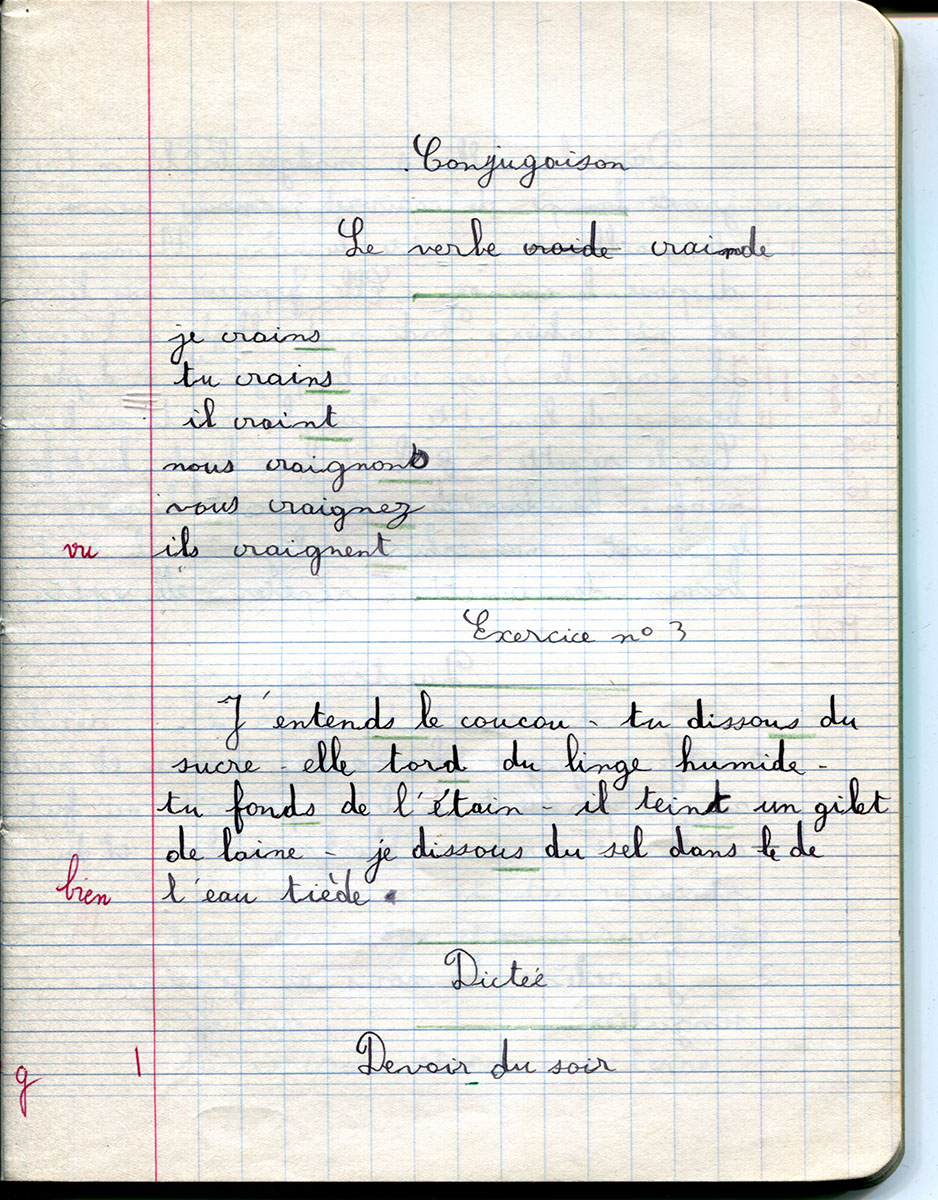 Conjugaison
Le verbe craide crainde
je crains
tu crains
il craint
nous craignons
vous craignez
vu ils craignent
Exercice n° 3
J'entends le coucou - tu dissous du
sucre - elle tord du linge humide -
tu fonds de l'étain - il teint un gilet
de laine - je dissous du sel dans le de
bien l'eau tiède.
Dictée
g 1 Devoir du soir